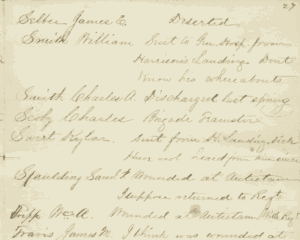 27
James E. Deserted
Smith William Sent to Gen Hosp from
Harrisons Landing. Dont
know his whereabouts
Smith Charles A. Discharged last spring
Charles Brigade Teamster
Sent from H. Landing, sick
Have not heard from him since
Spaulding Saml Wounded at Antietam
I suppose returned to Regt
Tripp Wm A. Wounded at Antietam with Regt
Travis James M. I think was wounded at